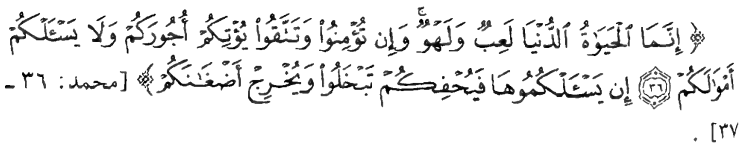 ﴿ إِنَّمَا الْحَيَوٰةُ الدُّنْيَا لَعِبٌ وَلَهْوٌ ۚ وَإِن تُؤْمِنُوا۟ وَتَتَّقُوا۟ يُؤْتِكُمْ أُجُورَكُمْ وَلَا يَسْـَٔلْكُمْ
أَمْوَٰلَكُمْ ۝٣٦ إِن يَسْـَٔلْكُمُوهَا فَيُحْفِكُمْ تَبْخَلُوا۟ وَيُخْرِجْ أَضْغَـٰنَكُمْ ﴾ [محمد: ٣٦ ـ
٣٧] .